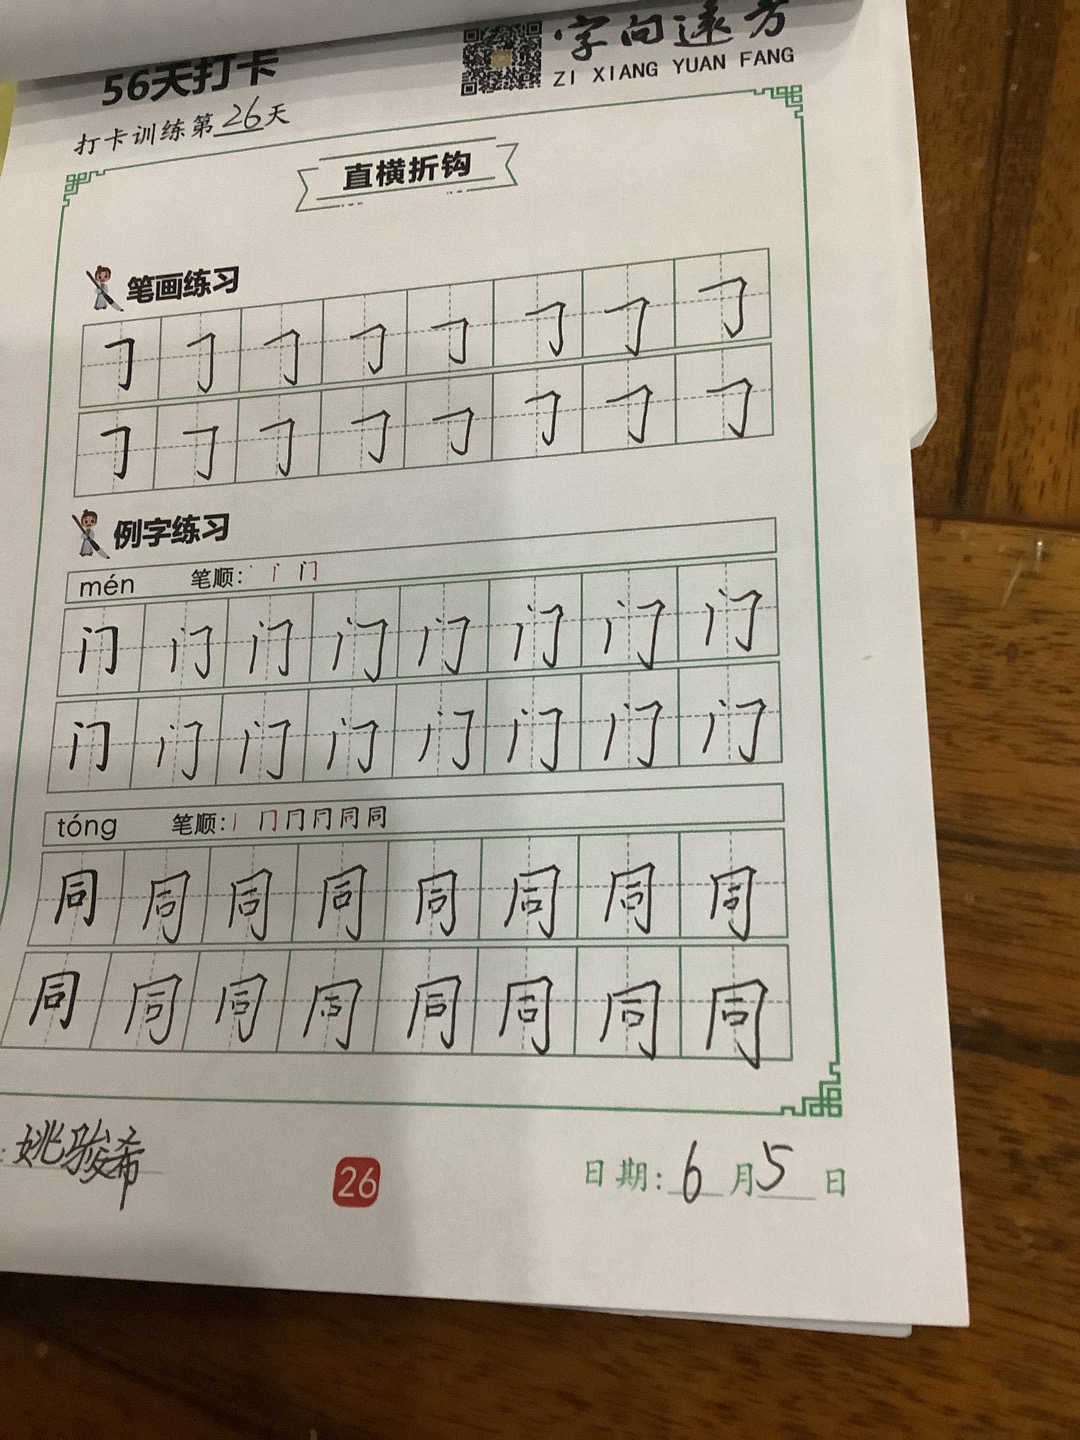 56天打卡
字向远方
ZI XIANG YUAN FANG
打卡训练第26天
直横折钩
笔画练习
𠃌 𠃌 𠃌 𠃌 𠃌 𠃌 𠃌 𠃌
𠃌 𠃌 𠃌 𠃌 𠃌 𠃌 𠃌 𠃌
例字练习
mén 笔顺: 丶 门
门 门 门 门 门 门 门 门
门 门 门 门 门 门 门 门
tóng 笔顺: 丨 冂 同
同 同 同 同 同 同 同 同
同 同 同 同 同 同 同 同
: 姚骏希
26
日期: 6月5日